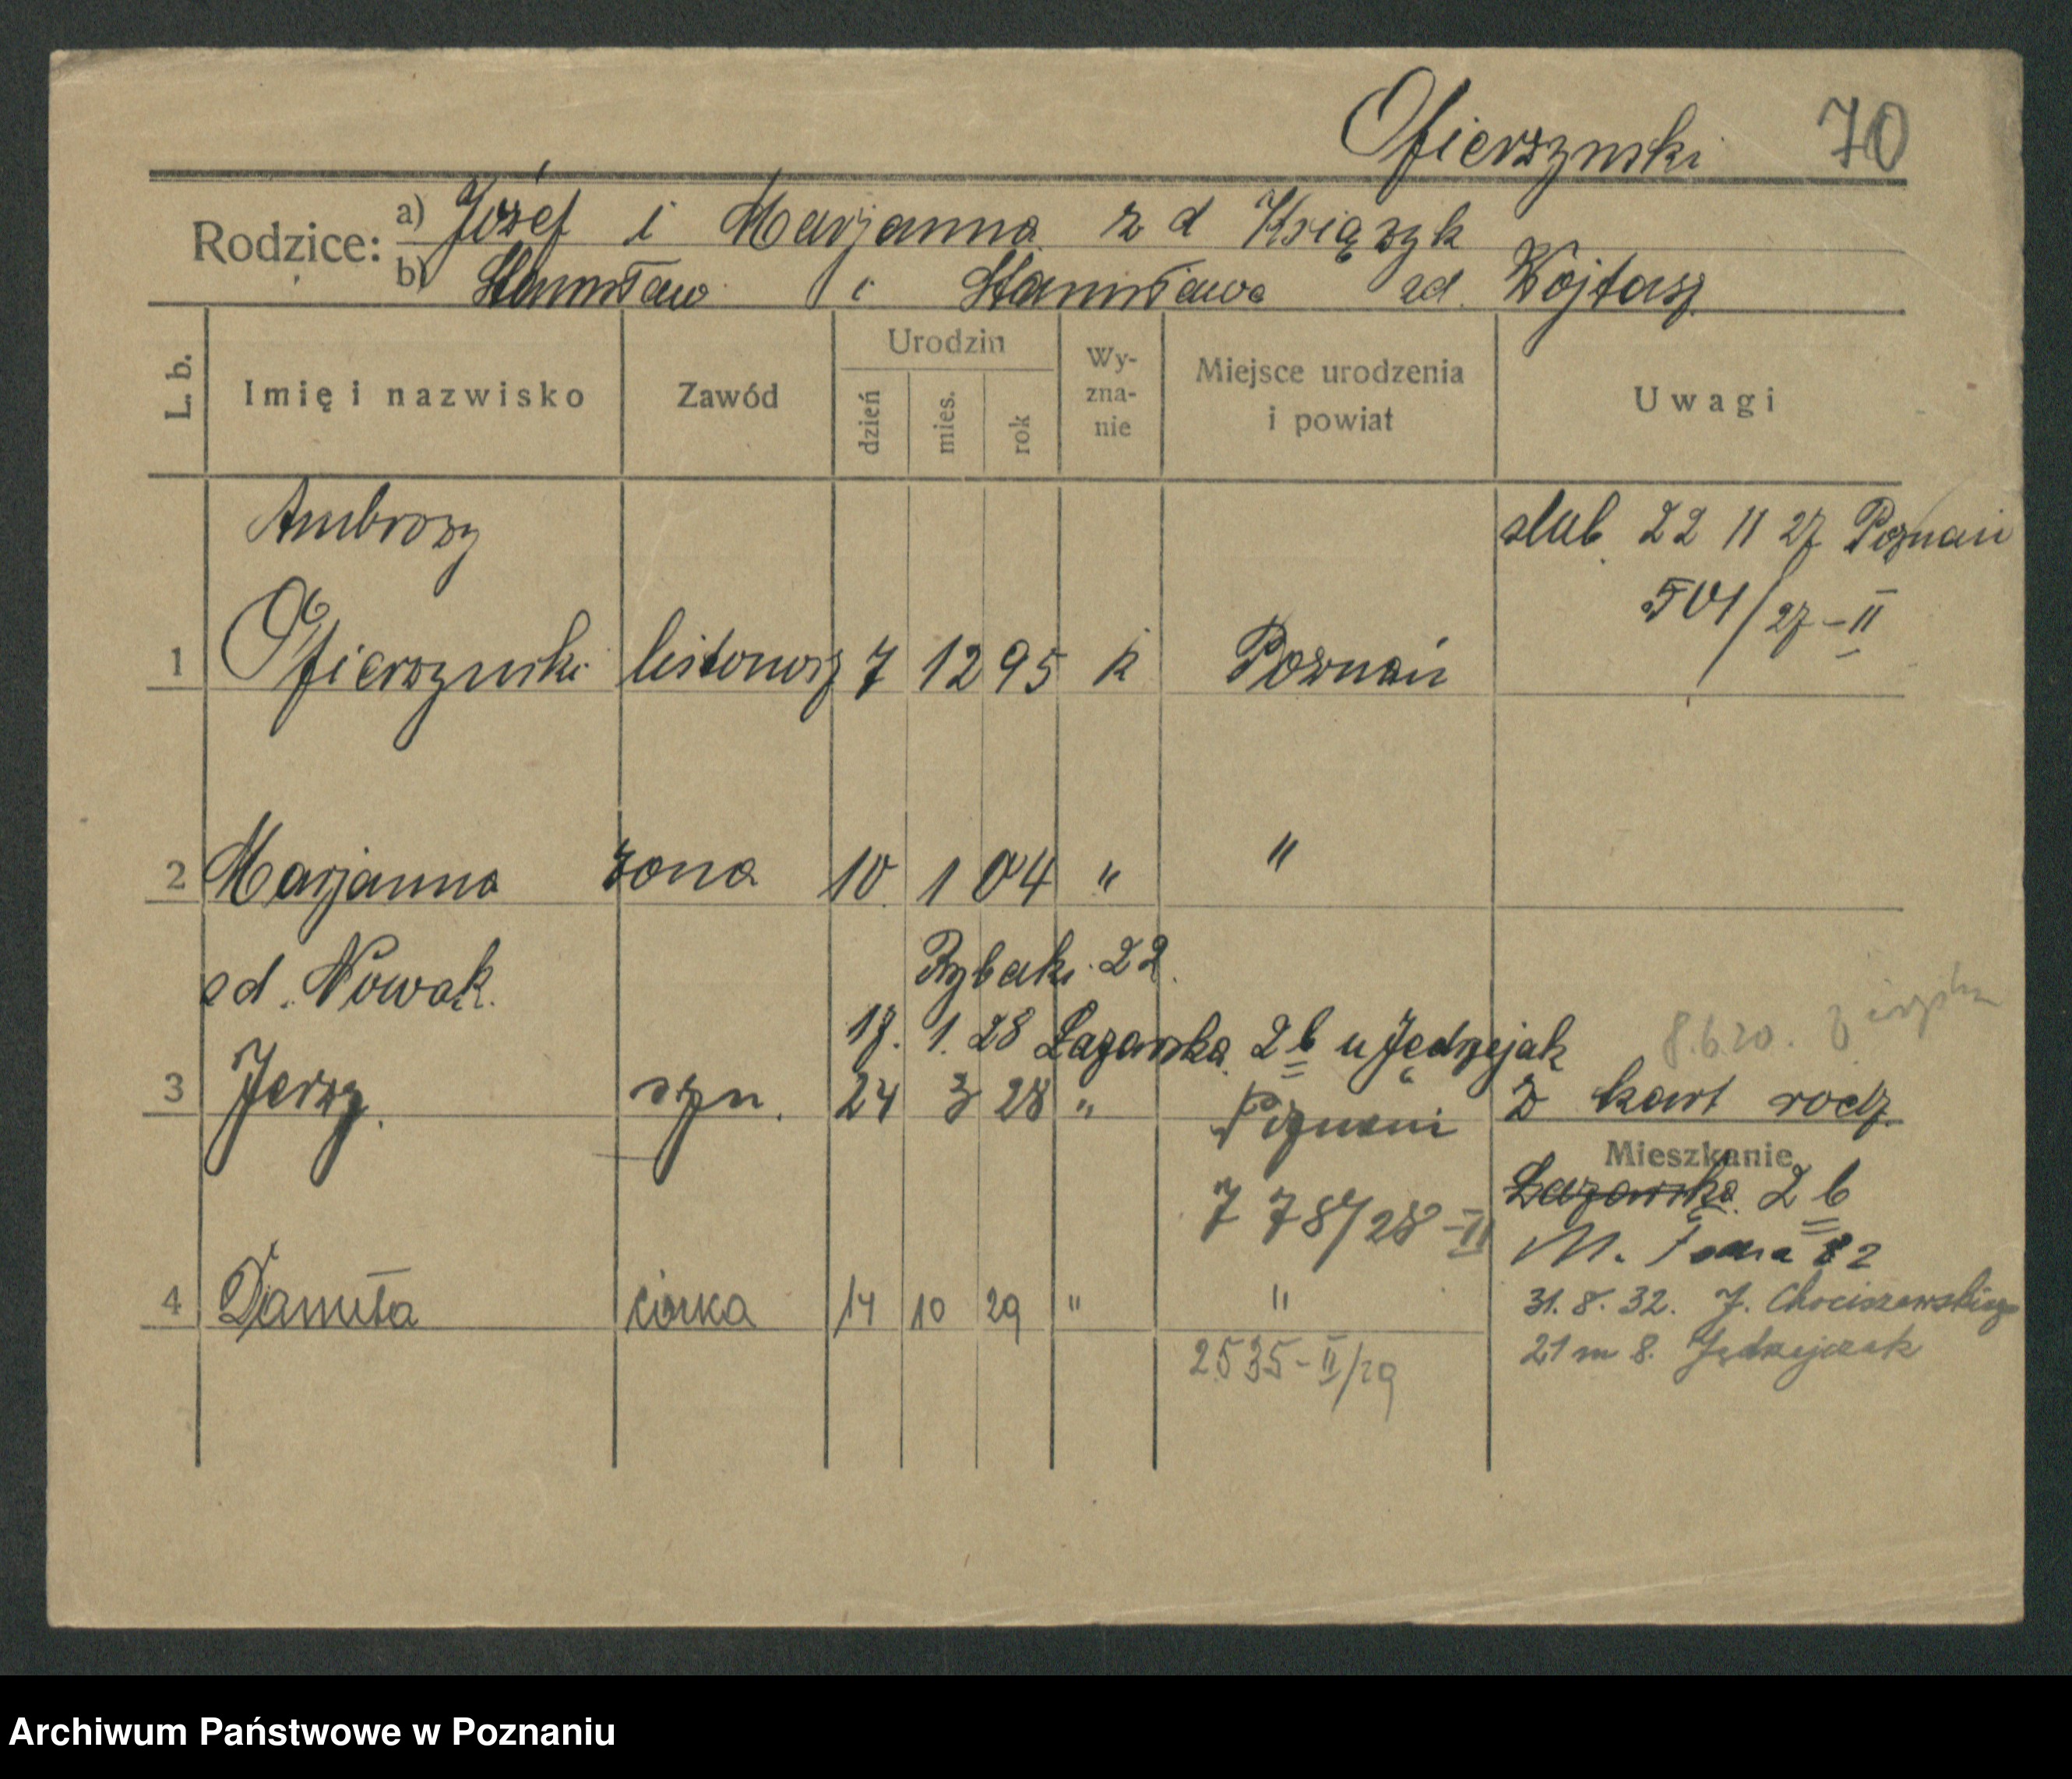 Ofierzynski 70
Rodzice: a) Józef i Marjanna z d Książyk
b) Stanisław i Stanisława zd. Wojtasz
L. b. Imię i nazwisko Zawód Urodzin dzień mies. rok Wy- zna- nie Miejsce urodzenia i powiat Uwagi
Ambrozy slub 22 11 27 Poznań
501/27-II
1 Ofierzynski listonosz 7 12 95 k Poznań
2 Marjanna żona 10 1 04 " "
zd. Nowak Rybaki 22.
17. 1. 28 Łazarska 2 b u Jędrzejak 8.6.20.
3 Jerzy syn. 24 3 28 " Poznań Z kart rodz.
Mieszkanie
Łazarska 2 b
778/28-II
M. Focha 82
4 Danuta córka 14 10 29 " " 31. 8. 32. J. Chociszewskiego
2535-II/29 21 m 8. Jędrzejczak
Archiwum Państwowe w Poznaniu